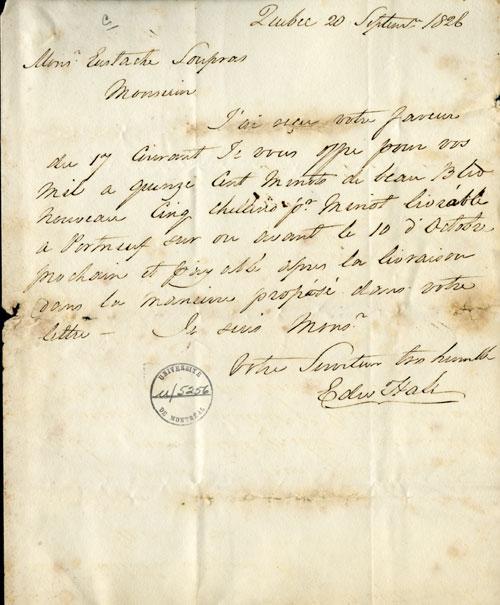 Quebec 20 Septemr 1826
Monsr Eustache Soupras
Monsieur
J'ai reçu votre faveur
du 17 Courant Je vous offre pour vos
mil a quinze Cent Minots de beau Bled
nouveau Cinq chellins pr Minot livrable
a Portneuf sur ou avant le 10 d'Octobre
prochain et payable apres la livraison
dans la maniere proposé dans votre
lettre — Je suis Monsr
Votre Serviteur tres humble
Edwd Hale
UNIVERSITÉ
u/5256
DE MONTRÉAL